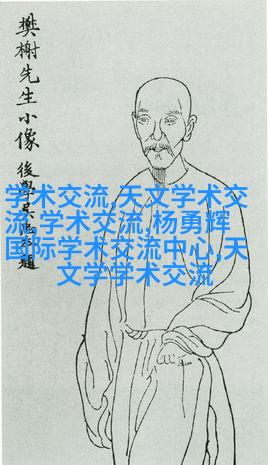 樊榭先生小像
後學
題
学术交流,天文学术交
流,学术交流,杨勇辉
国际学术交流中心,天
文学学术交流